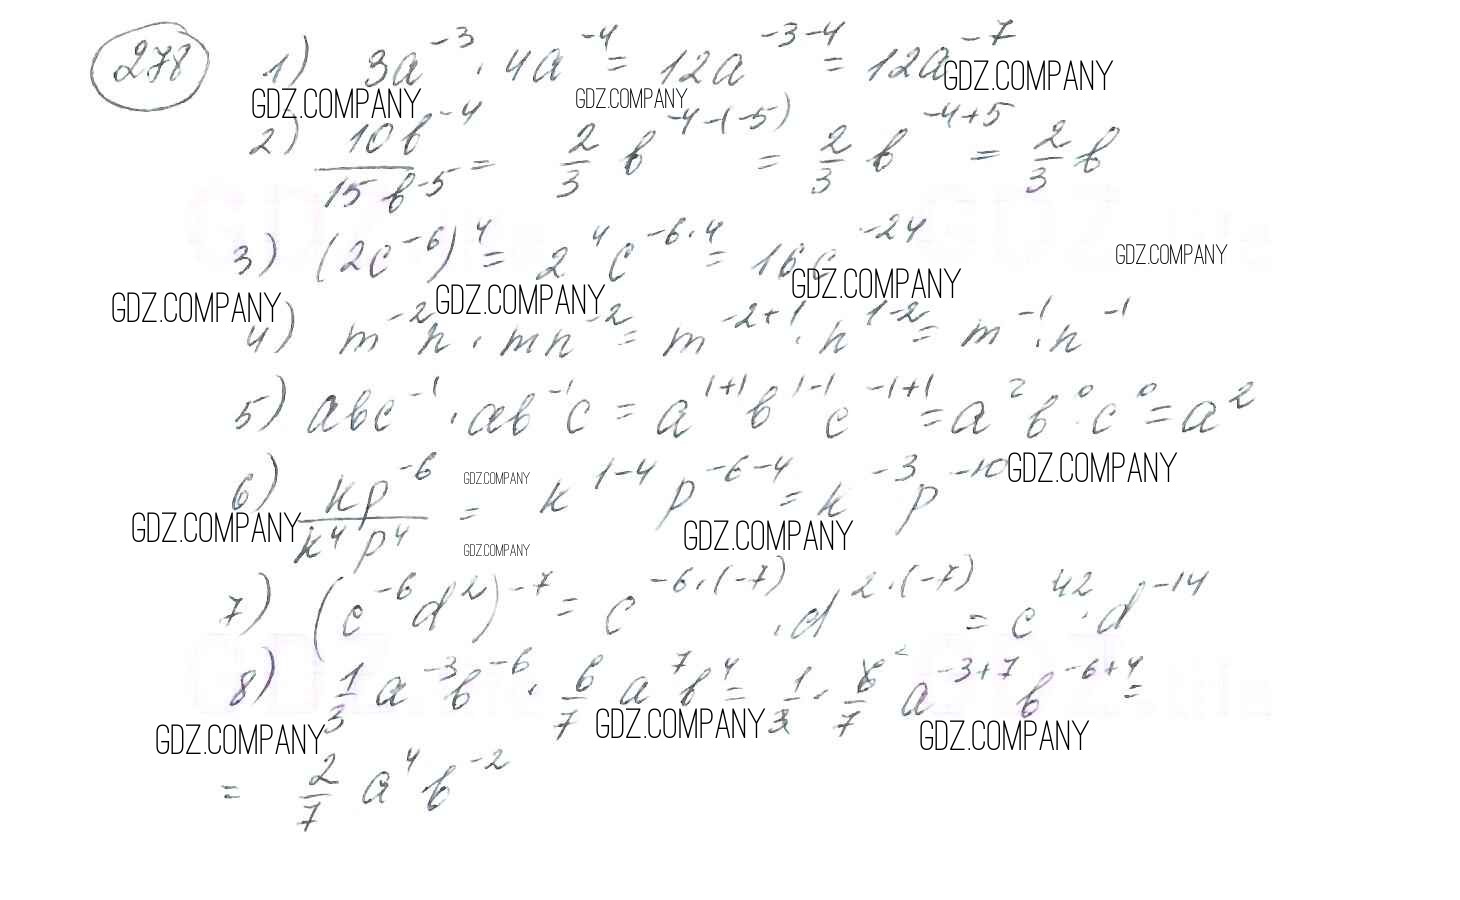 278 1) 3a^{-3} · 4a^{-4} = 12a^{-3-4} = 12a^{-7}
GDZ.COMPANY GDZ.COMPANY GDZ.COMPANY
2) \frac{10b^{-4}}{15b^{-5}} = \frac{2}{3} b^{-4-(-5)} = \frac{2}{3} b^{-4+5} = \frac{2}{3} b
3) (2c^{-6})^4 = 2^4 c^{-6·4} = 16c^{-24}
GDZ.COMPANY
GDZ.COMPANY GDZ.COMPANY GDZ.COMPANY
4) m^{-2}n · mn^{-2} = m^{-2+1} · n^{1-2} = m^{-1} · n^{-1}
5) abc^{-1} · ab^{-1}c = a^{1+1} b^{1-1} c^{-1+1} = a^2 b^0 · c^0 = a^2
6) \frac{kp^{-6}}{k^4p^4} = k^{1-4} p^{-6-4} = k^{-3} p^{-10}
GDZ.COMPANY GDZ.COMPANY
GDZ.COMPANY GDZ.COMPANY GDZ.COMPANY
7) (c^{-6}d^2)^{-7} = c^{-6·(-7)} · d^{2·(-7)} = c^{42} · d^{-14}
8) \frac{1}{3} a^{-3}b^{-6} · \frac{6}{7} a^7b^4 = \frac{1}{3} · \frac{6}{7} a^{-3+7} b^{-6+4} =
GDZ.COMPANY GDZ.COMPANY GDZ.COMPANY
= \frac{2}{7} a^4 b^{-2}